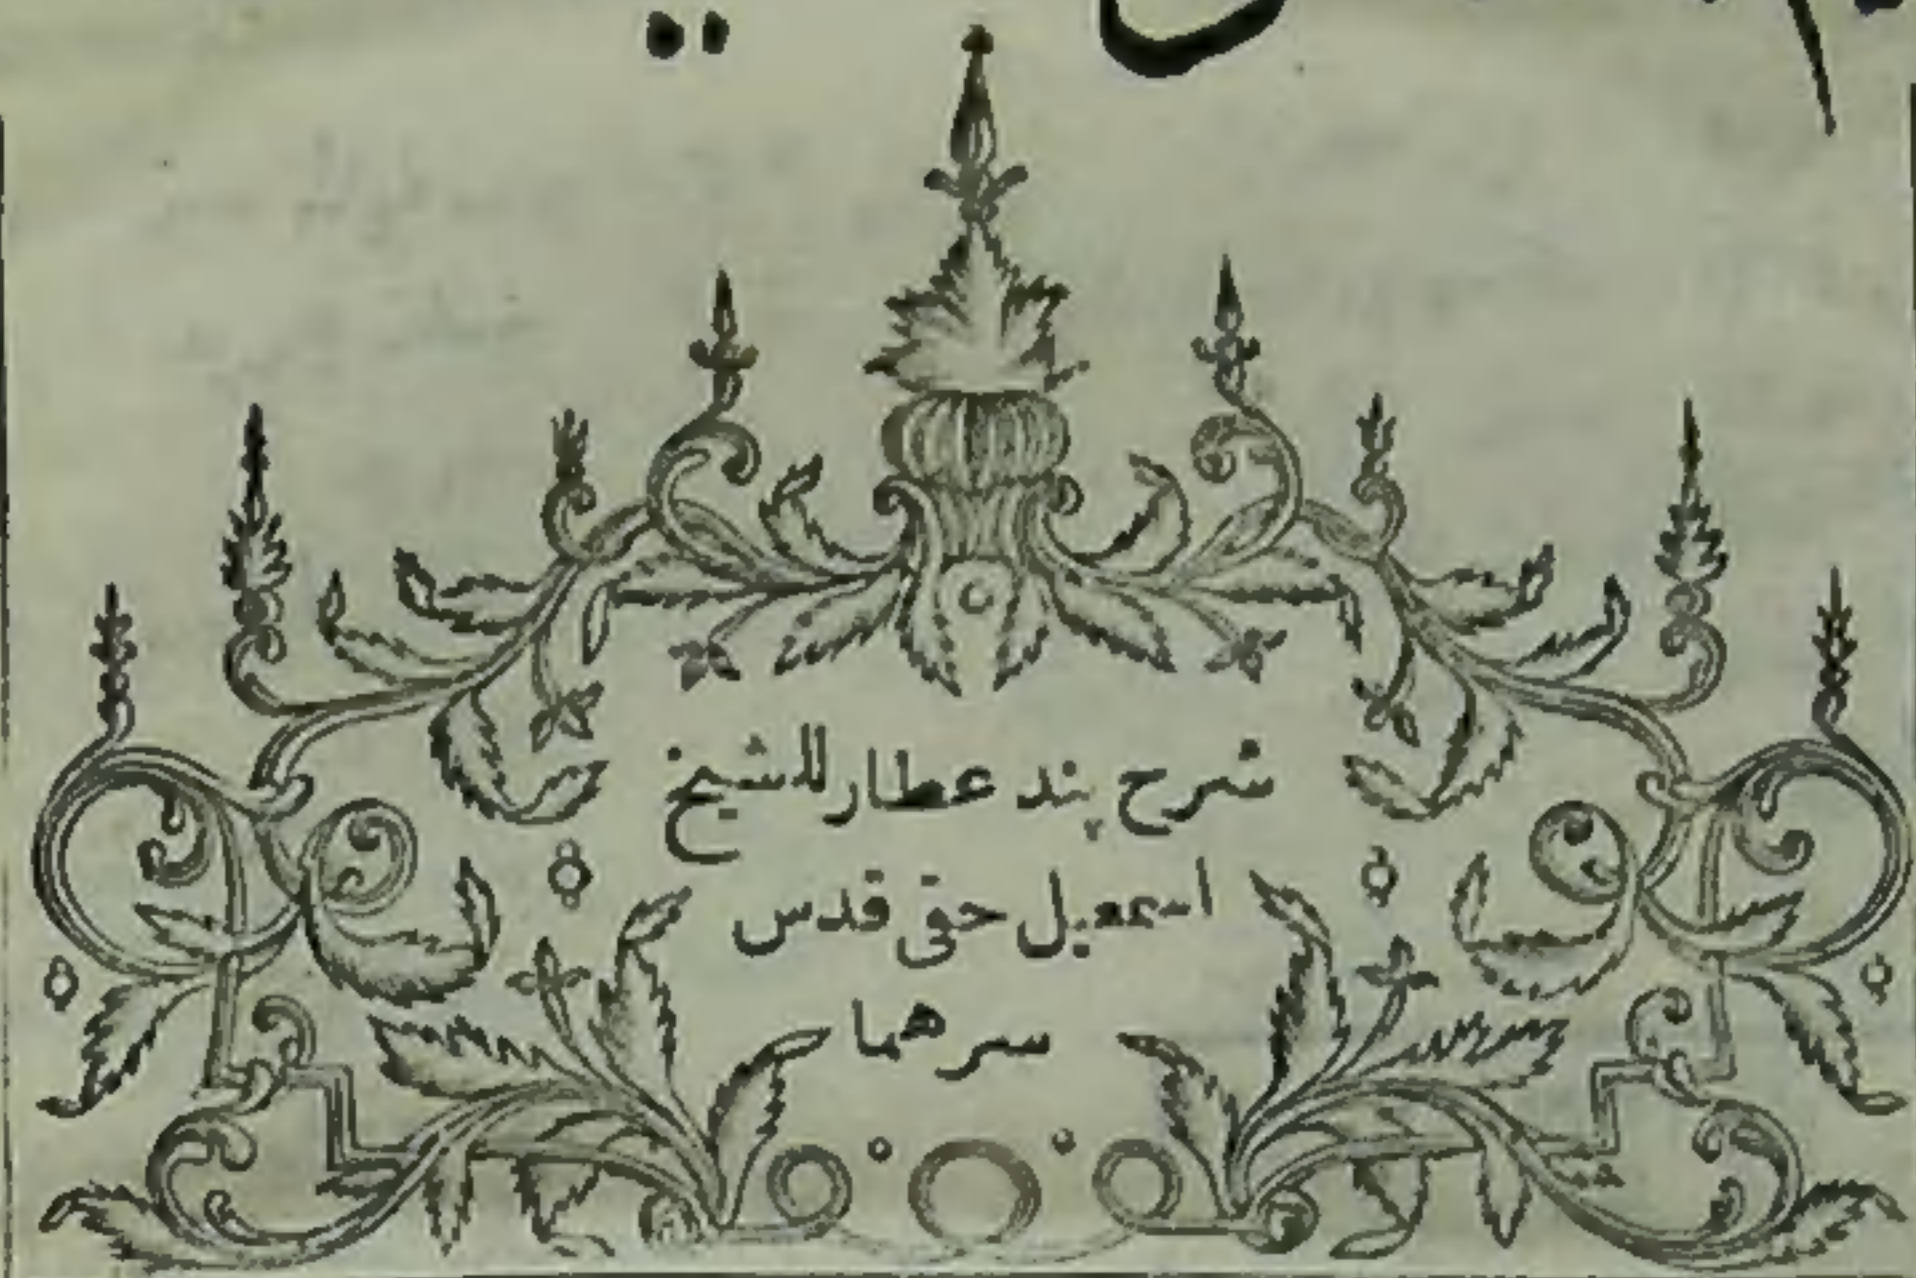 شرح پند عطار للشيخ
اسمعيل حقى قدس
سرهما